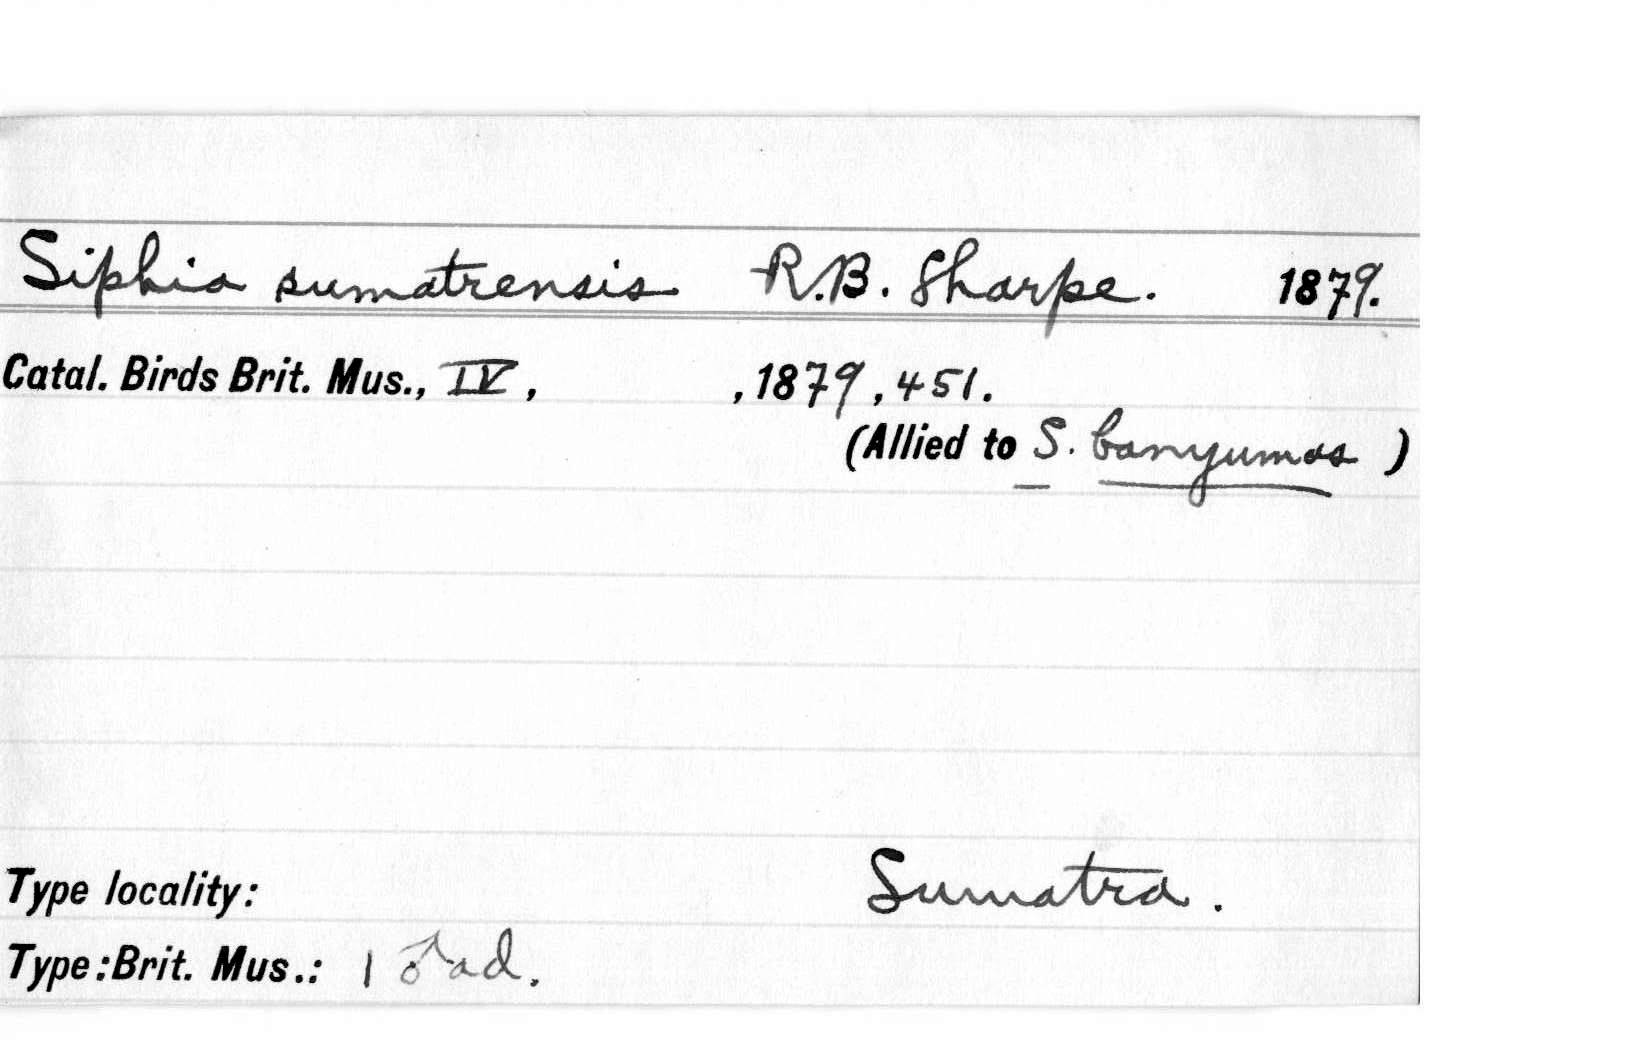 Siphia sumatrensis R.B. Sharpe. 1879.
Catal. Birds Brit. Mus., IV, ,1879,451.
(Allied to S. banyumas )
Type locality: Sumatra.
Type:Brit. Mus.: 1 ♂ ad.